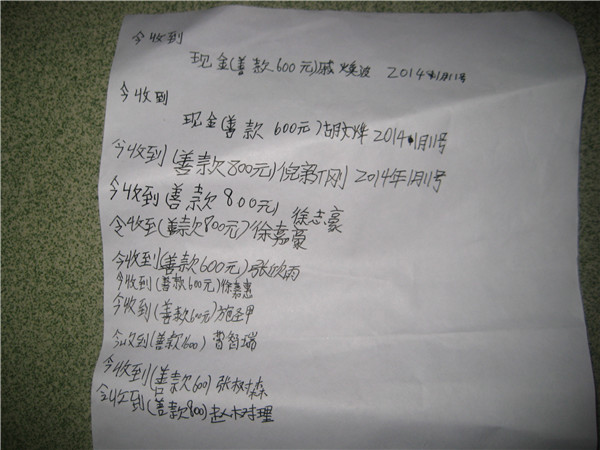 今收到
现金(善款600元)戚焕波 2014年1月11号
今收到
现金(善款 600元)胡文烨 2014年1月11号
今收到(善款800元)倪新刚 2014年1月11号
今收到善款800元) 徐志豪
今收到(善款800元)徐嘉豪
今收到(善款600元)张欣雨
今收到(善款600元)徐嘉惠
今收到(善款600元)施圣甲
今收到(善款600)曹智瑞
今收到(善款600)张树森
今收到(善款800)赵树理